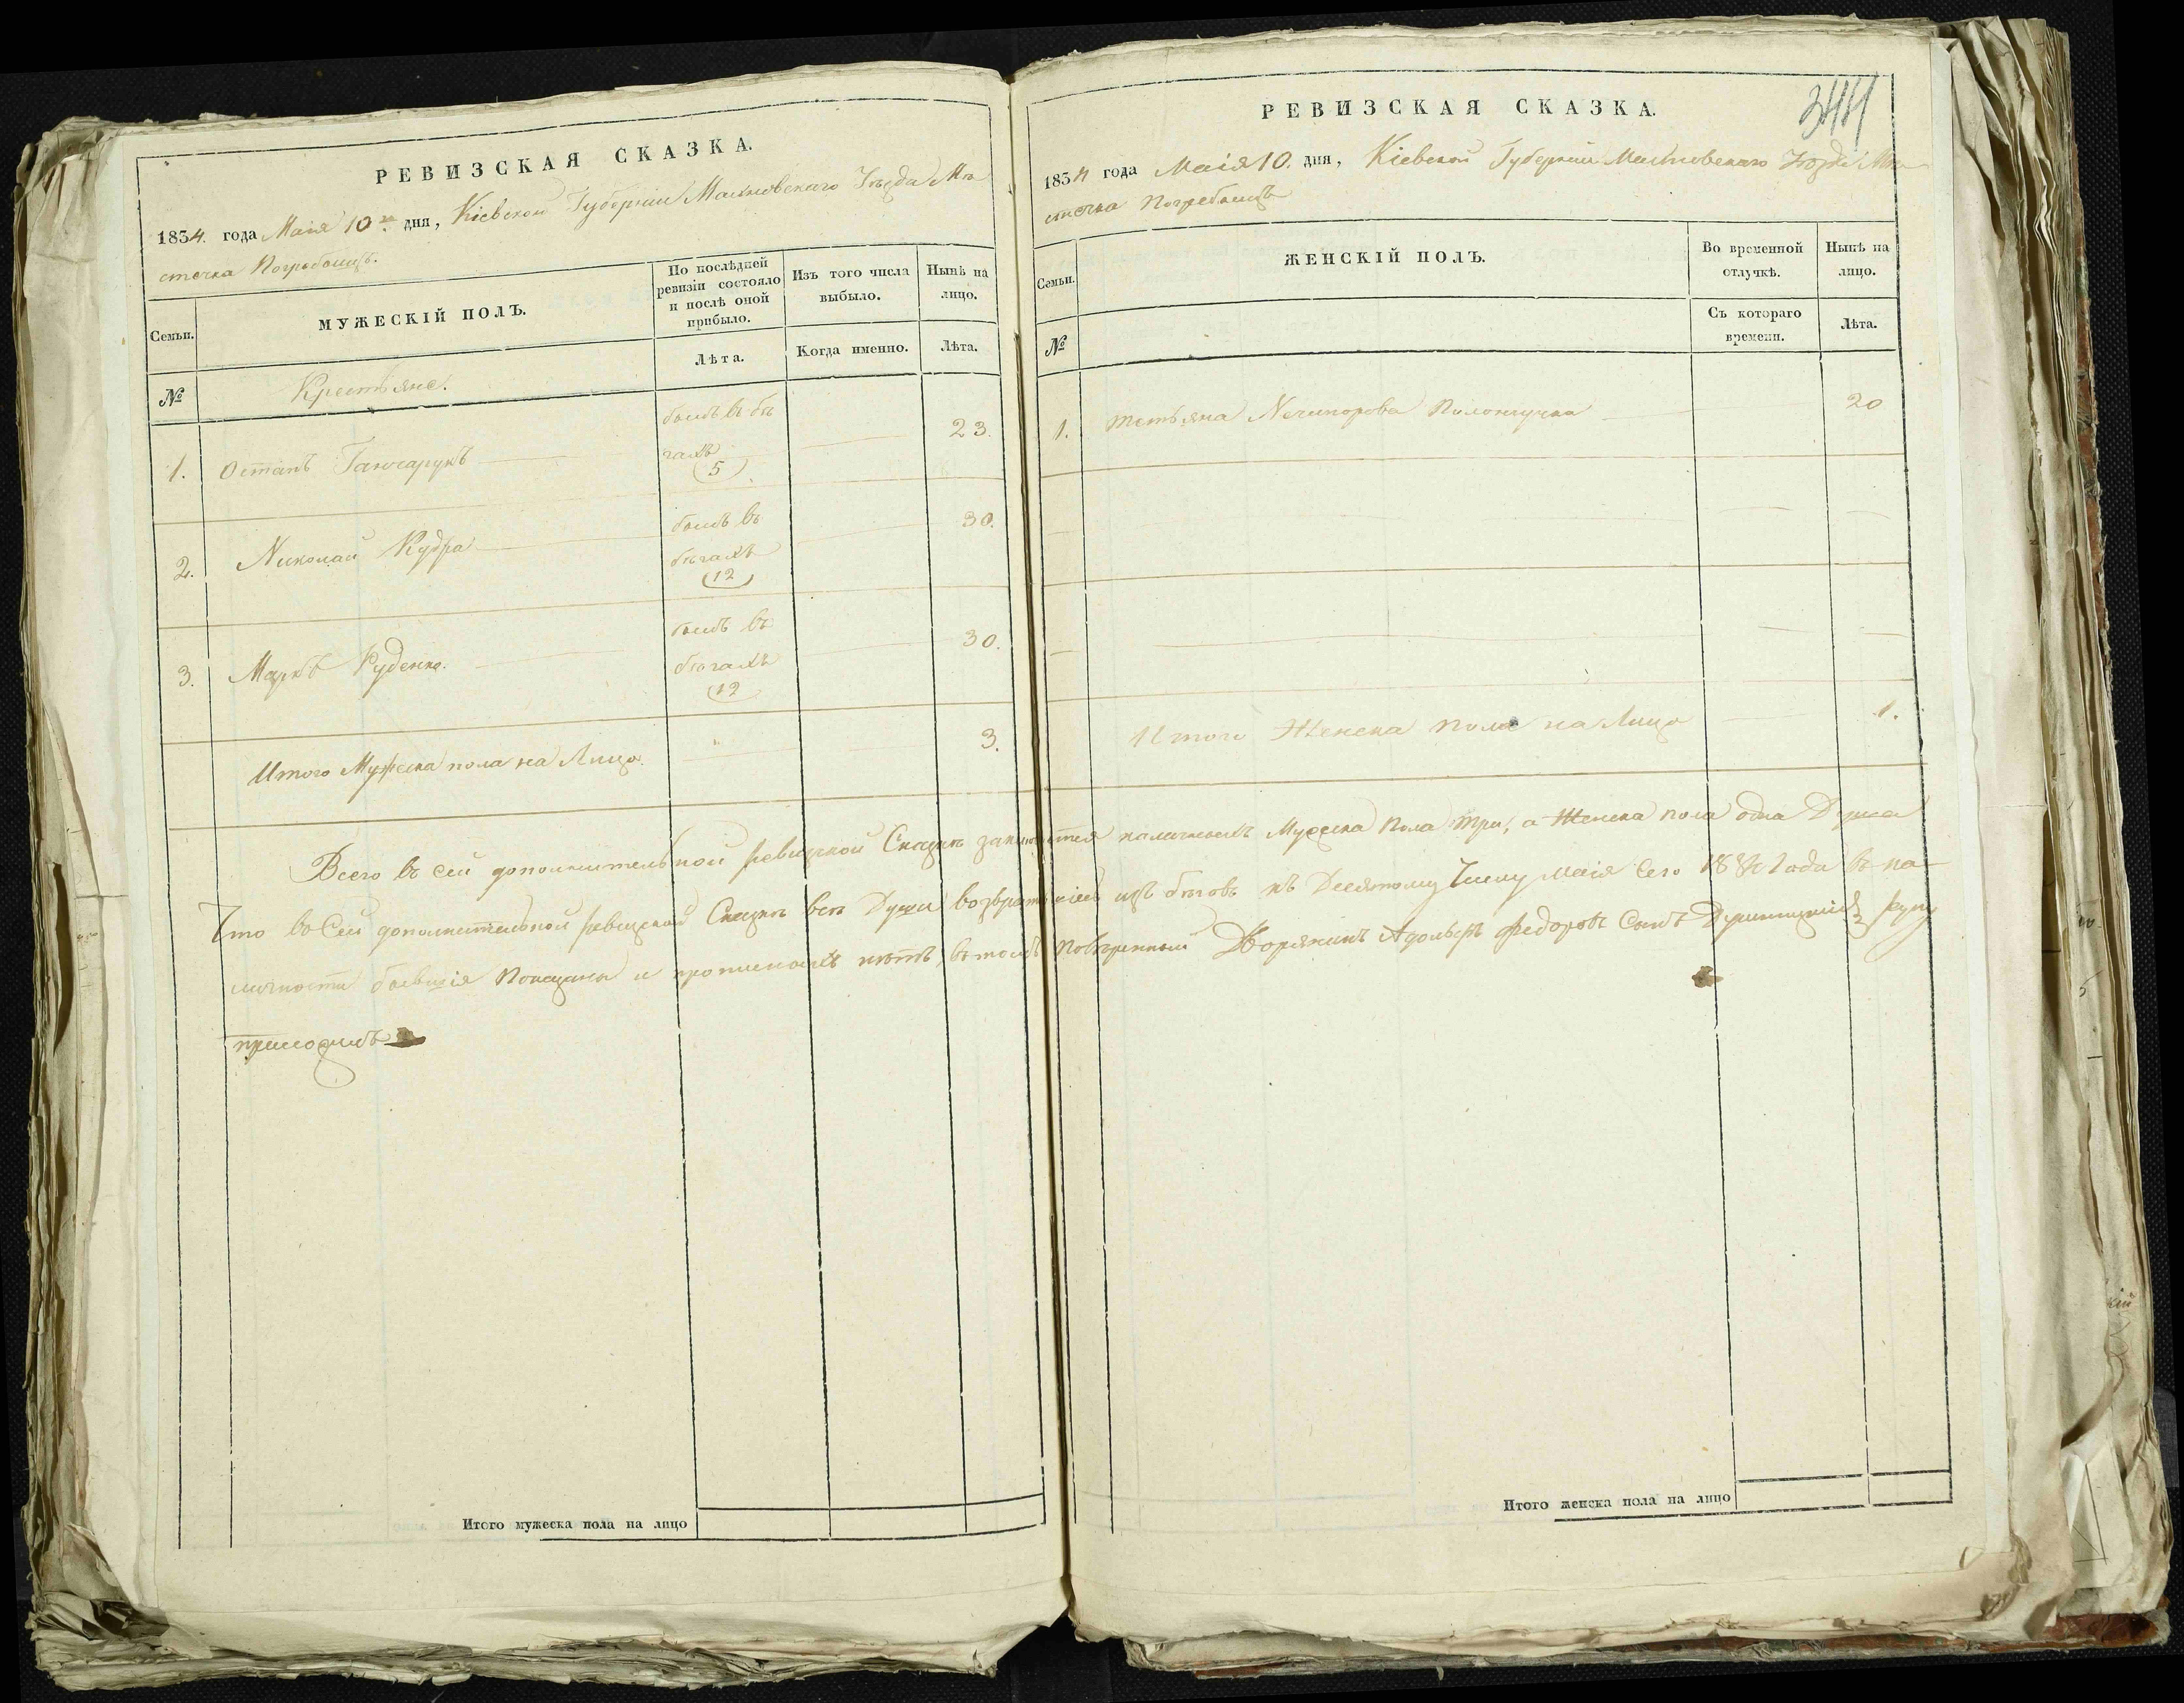 РЕВИЗСКАЯ СКАЗКА.
1834. года Маія 10го дня, Кіевской Губерніи Махновскаго Уѣзда Мѣ
стечка Погребищь.
Семьи.
МУЖЕСКІЙ ПОЛЪ.
По послѣдней ревизіи состояло и послѣ оной прибыло.
Изъ того числа выбыло.
Нынѣ на лицо.
Лѣта.
Когда именно.
Лѣта.
№
Крестьяне.
1. Остапъ Ганчарукъ былъ въ бѣ
гахъ 23.
(5)
2. Николай Кудра былъ въ 30.
бѣгахъ
(12)
3. Марко Руденко. былъ въ 30.
бѣгахъ
(12)
Итого Мужеска пола на Лицо. 3.
Итого мужеска пола на лицо
344
РЕВИЗСКАЯ СКАЗКА.
1834 года Маія 10. дня, Кіевской Губерніи Махновскаго Уѣзда Мѣ
стечка Погребищь
Семьи.
ЖЕНСКІЙ ПОЛЪ.
Во временной отлучкѣ.
Нынѣ на лицо.
№
Съ котораго времени.
Лѣта.
1. Тетьяна Нечипорова 20
Итого Женска пола на Лицо 1.
Всего въ сей дополнительной ревизской Сказкѣ заключается наличныхъ Мужеска Пола три, а Женска пола одна Душа
Что въ Сей дополнительной ревизской Сказкѣ всѣ Души возвратившіеся изъ бѣговъ къ Десятому Числу Маія Сего 1834 Года въ на
личности бывшія Показаны и прописныхъ нѣтъ, въ томъ Повѣренный Дворянинъ Адольфъ Федоровъ Сынъ руку
приложилъ
Итого женска пола на лицо